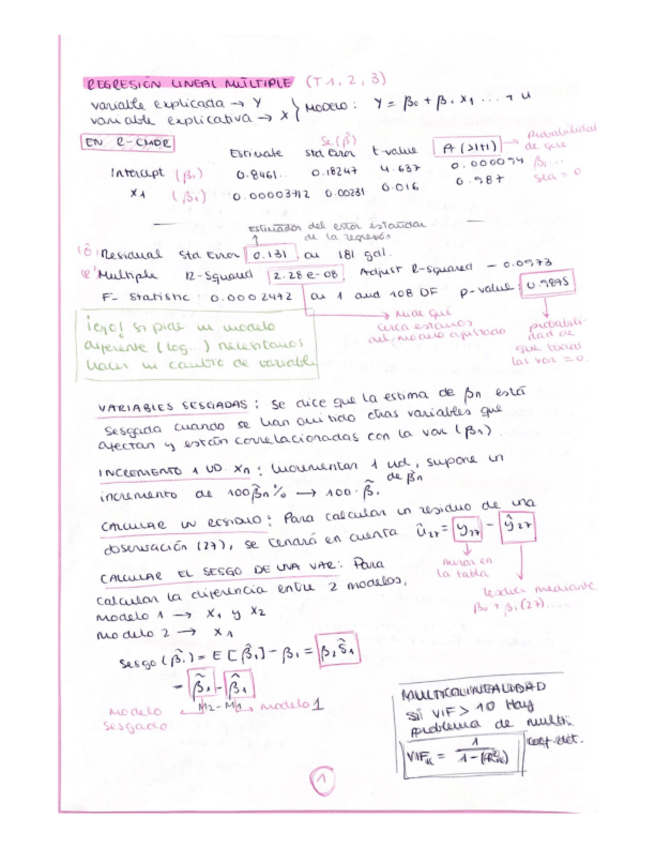 REGRESIÓN LINEAL MÚLTIPLE (T1, 2, 3)
variable explicada → Y
variable explicativa → X } MODELO: Y = β₀ + β₁ X₁ ... + u
EN R-CMDR
Se(β̂) Probabilidad de que β₁... sea = 0
Estimate Std Error t-value Pr(>|t|)
Intercept (β₁) 0.8461.. 0.18247 4.637 0.000094
X₁ (β₁) 0.00003712 0.00231 0.016 0.987
Estimador del error estándar
de la regresión
Residual Std Error 0.131 on 181 gal.
Multiple R-Squared 2.28e-08, Adjust R-squared - 0.0973
F- Statistic: 0.0002472 on 1 and 108 DF p-value: 0.9875
Mide qué
cerca estamos
del modelo ajustado
probabili-
dad de
que todas
las var = 0.
¡ojo! si pide un modelo
diferente (log..) necesitamos
hacer un cambio de variable
VARIABLES SESGADAS: Se dice que la estima de βn está
sesgada cuando se han omitido otras variables que
afectan y están correlacionadas con la var (β₁)
INCREMENTO 1 UD. Xn: Incrementar 1 ud, supone un
incremento de 100β̃n% → 100·β̃₁ de β̃n
CALCULAR UN RESIDUO: Para calcular un residuo de una
observación (27), se tendrá en cuenta û₂₇ = y₂₇ - ŷ₂₇
mirar en
la tabla
CALCULAR EL SESGO DE UNA VAR: Para
calcular la diferencia entre 2 modelos,
mediante
β₀ + β₁(27).....
modelo 1 → X₁ y X₂
modelo 2 → X₁
Sesgo(β̃₁) = E[β̃₁] - β₁ = β₂δ̃₁
= β̃₁ - β̂₁
M2 - M1
modelo
sesgado
modelo 1
MULTICOLINEALIDAD
Si VIF > 10 Hay
problema de multi.
VIFₖ = 1 / 1-(R²ₖ) coef. det.
1